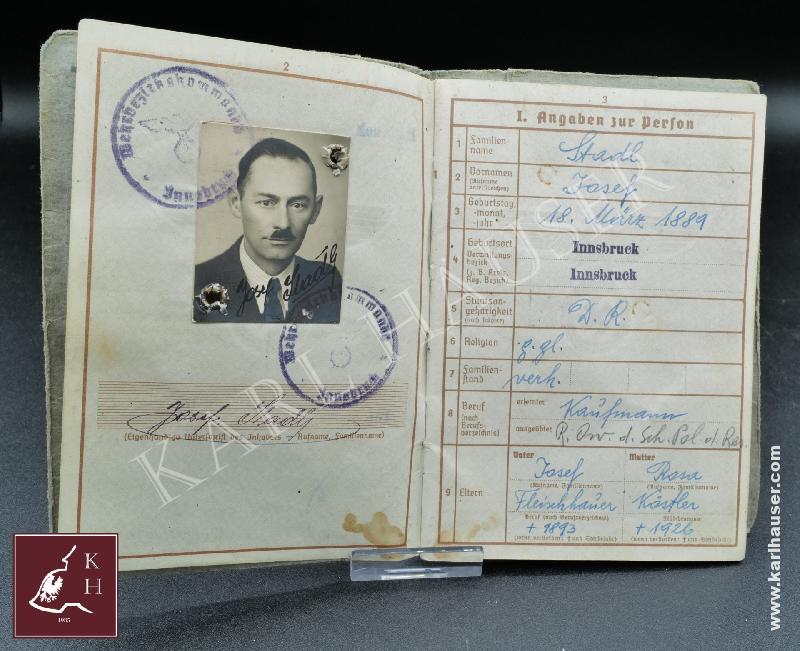 2
Wehrbezirkskommando
Innsbruck
Josef Stadl
Wehrbezirkskommando
Innsbruck
Josef Stadl
(Eigenhändige Unterschrift des Inhabers – Rufname, Familienname)
3
I. Angaben zur Person
1 Familienname Stadl
2 Vornamen (Rufname unterstreichen) Josef
3 Geburtstag, -monat, -jahr 18. März 1889
4 Geburtsort Innsbruck
Verwaltungsbezirk (z. B. Kreis, Reg. Bezirk) Innsbruck
5 Staatsangehörigkeit (auch frühere) D. R.
6 Religion g.gl.
7 Familienstand verh.
8 Beruf (nach Berufsverzeichnis) erlernter Kaufmann
ausgeübter d. Sch. Pol. d. Res.
9 Eltern
Vater Mutter
Josef Rosa
(Rufname, Familienname) (Rufname, Familienname)
Fleischhauer Köstler
Beruf (nach Berufsverzeichnis) Mädchenname
+ 1893 + 1926
(wenn verstorben: † und Sterbejahr) (wenn verstorben: † und Sterbejahr)
KARL HAUSER
KARL HAUSER
K
H
1935
www.karlhauser.com